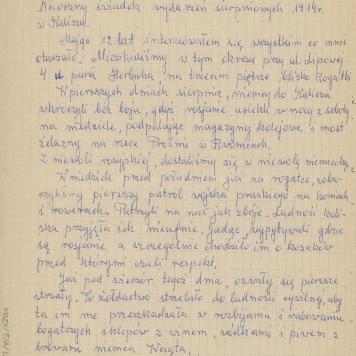 Naoczny świadek wydarzeń sierpniowych 1914 r.
w Kaliszu.
Mając 12 lat interesowałem się wszystkim co mnie
otaczało. Mieszkaliśmy w tym okresie przy ul. Lipowej
4 u pana Herbicha na trzecim piętrze blisko Rogatki
W pierwszych dniach sierpnia, niemcy do Kalisza
wkroczyli bez boju, gdyż rosjanie uciekli w nocy z soboty
na niedzielę, podpalając magazyny kolejowe i most
żelazny na rzece Prośnie w Piwonicach.
Z niewoli rosyjskiej, dostaliśmy się w niewolę niemiecką
W niedzielę przed południem już na rogatce, zoba-
czyliśmy pierwszy patrol wojska pruskiego na koniach
i rowerach. Patrzyli na nas jak zboje. Ludność kali-
ska przyjęła ich nieufnie. Jadąc wypytywali gdzie
są rosjanie a szczególnie chodziło im o kozaków
przed którymi czuli respekt.
Już pod wieczór tegoż dnia, ozwały się pierwsze
strzały. To żołdactwo strzelało do ludności cywilnej, aby
ta im nie przeszkadzała w rozbijaniu i rabowaniu
bogatszych sklepów z winem, wódkami i piwem z
browaru niemca Weigta.